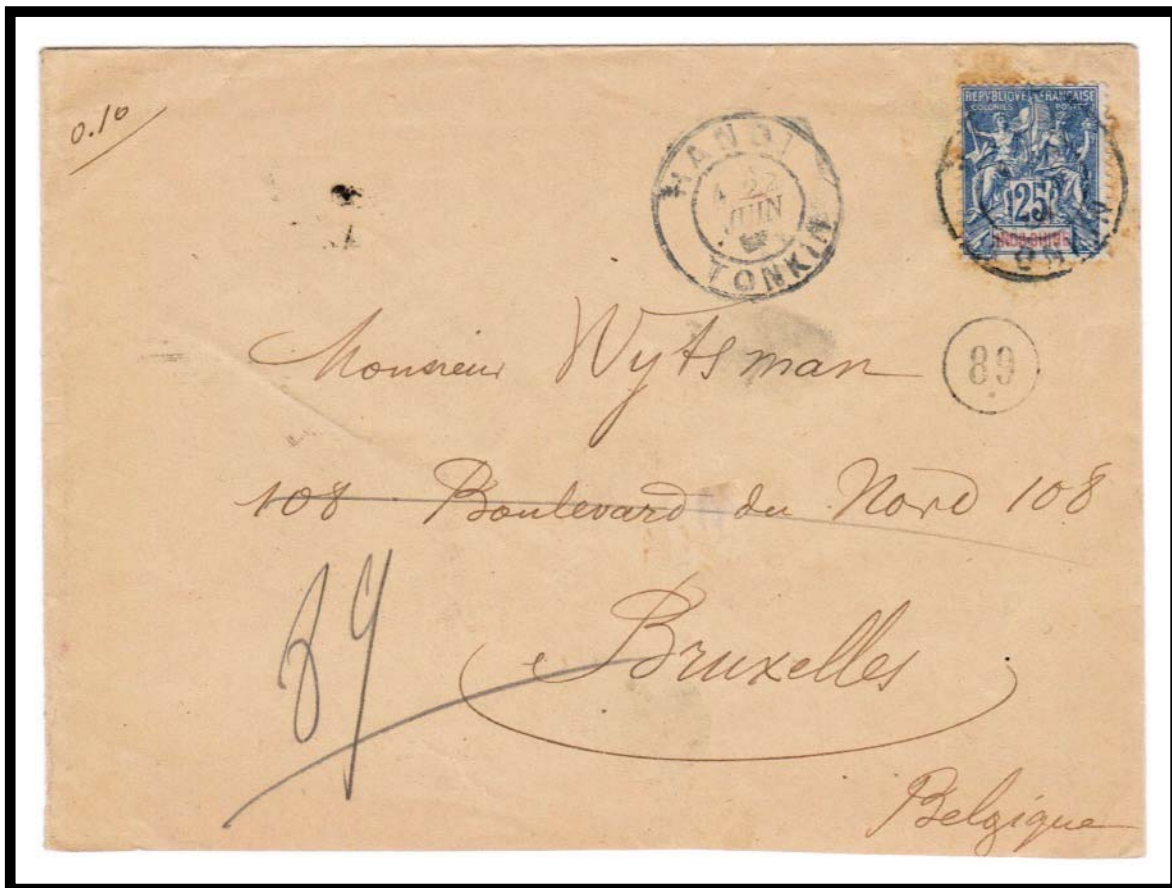 0.10
HANOI
22
JUIN
TONKIN
REPVBLIQVE FRANÇAISE
COLONIES POSTES
25
INDO-CHINE
Monsieur Wytsman
89
108 Boulevard du Nord 108
89
Bruxelles
Belgique